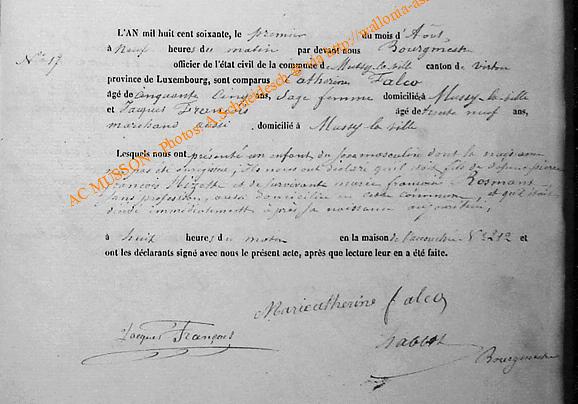 L'AN mil huit cent soixante, le premier du mois d'Août
N° 17
à neuf heures du matin par devant nous Bourgmestre
officier de l'état civil de la commune de Mussy-la-ville canton de virton
province de Luxembourg, sont comparus Catherine Falco
âgé de cinquante cinq ans, sage femme domicilié à Mussy-la-ville
et Jacques François âgé de trente neuf ans,
marchand aussi , domicilié à Mussy la ville
Lesquels nous ont présenté un enfant du sexe masculin dont la naissance
pas de ils nous ont déclaré qu'il était fils de défunt pierre
françois et de survivante marie françoise Rosmant
sans profession, aussi domiciliée en cette commune, et qu'il était
décédé immédiatement après sa naissance
à huit heures du matin en la maison de l'accouchée N° 212 et
ont les déclarants signé avec nous le présent acte, après que lecture leur en a été faite.
Mariecatherine falco
Jacques François
Bourgmestre
AC MUSSON - Photos: A.Schneidesch @ via http://wallonia-as